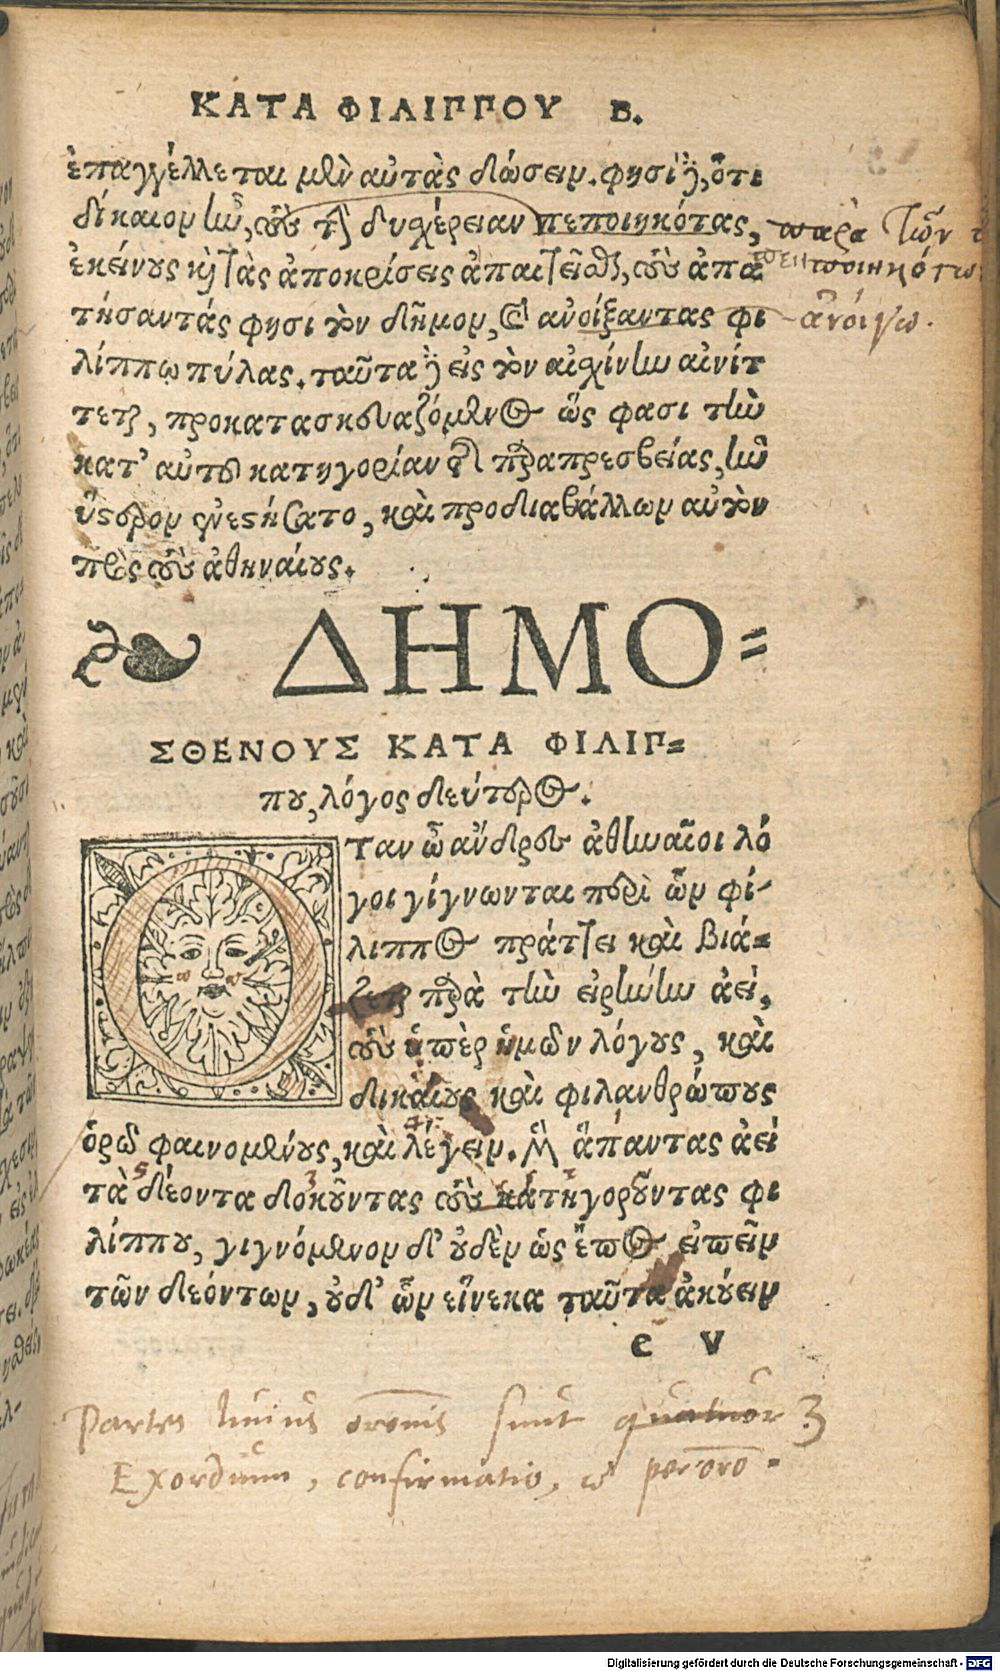 ΚΑΤΑ ΦΙΛΙΠΠΟΥ Β.
ἐπαγγέλλεται μὲν αὐτὰς δώσειν. φησὶ δὲ, ὅτι
δίκαιον ἦν, τοὺς τὴν δυχέρειαν πεποιηκότας, παρὰ τῶν
ἐκείνους καὶ τὰς ἀποκρίσεις ἀπαιτεῖσθαι, τοὺς ἀπα πεποιηκότω
τήσαντάς φησι τὸν δῆμον, καὶ ἀνοίξαντας φι ἀνοίγω.
λίππῳ πύλας. ταῦτα δὲ εἰς τὸν αἰσχίνην αἰνίτ
τεται, προκατασκευαζόμενος ὥς φασι τὴν
κατ' αὐτοῦ κατηγορίαν τῆς παραπρεσβείας, ἣν
ὕστερον ἐνεστήσατο, καὶ προδιαβάλλων αὐτὸν
πρὸς τοὺς ἀθηναίους.
ΔΗΜΟ=
ΣΘΕΝΟΥΣ ΚΑΤΑ ΦΙΛΙΠ=
που, λόγος δεύτερος.
Ὅταν ὦ ἄνδρες ἀθηναῖοι λό
γοι γίγνωνται περὶ ὧν φί-
λιππος πράττει καὶ βιά=
ζεται παρὰ τὴν εἰρήνην ἀεὶ,
τοὺς ὑπὲρ ἡμῶν λόγους, καὶ
δικαίους καὶ φιλανθρώπους
ὁρῶ φαινομένους, καὶ λέγειν μὲν ἅπαντας ἀεὶ
τὰ δέοντα δοκοῦντας τοὺς κατηγοροῦντας φι
λίππου, γιγνόμενον δ' οὐδὲν ὡς ἔπος εἰπεῖν
τῶν δεόντων, οὐδ' ὧν εἵνεκα ταῦτα ἀκούειν
c v
Partes huius orõnis sunt quatuor 3
Exordium, confirmatio, et peroro=